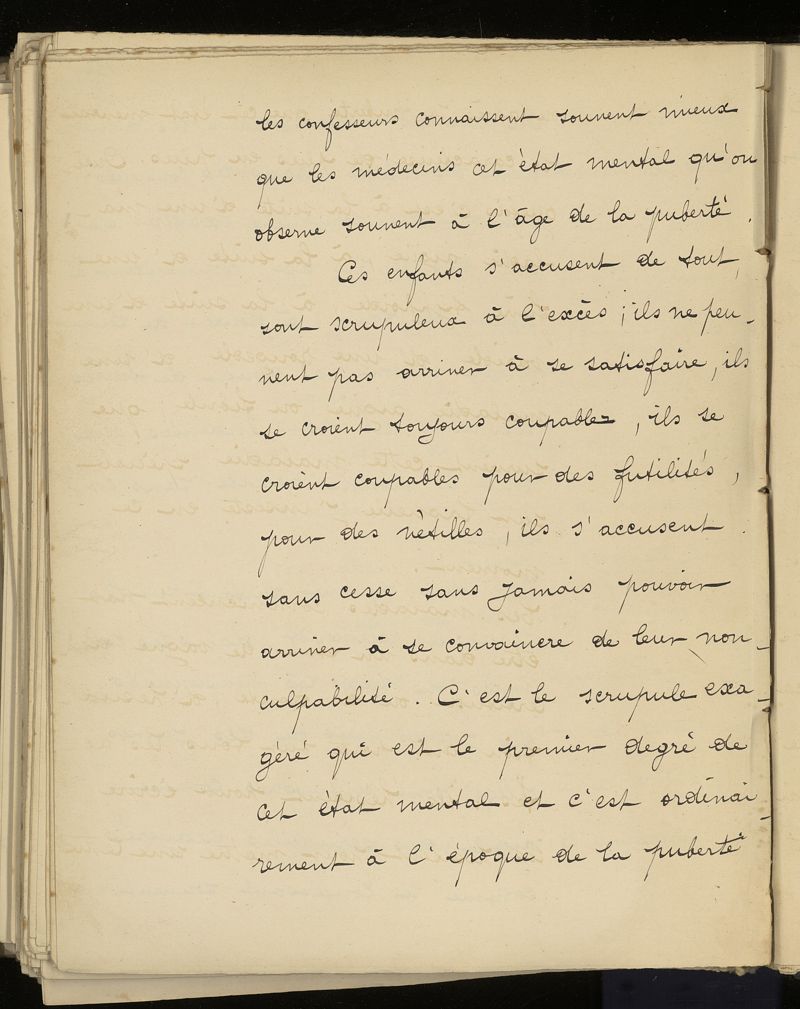 les confesseurs connaissent souvent mieux
que les médecins cet état mental qu'on
observe souvent à l'âge de la puberté.
Ces enfants s'accusent de tout,
sont scrupuleux à l'excès ; ils ne peu-
vent pas arriver à se satisfaire, ils
se croient toujours coupables, ils se
croient coupables pour des futilités,
pour des vétilles, ils s'accusent
sans cesse sans jamais pouvoir
arriver à se convaincre de leur non-
culpabilité. C'est le scrupule exa-
géré qui est le premier degré de
cet état mental et c'est ordinai-
rement à l'époque de la puberté